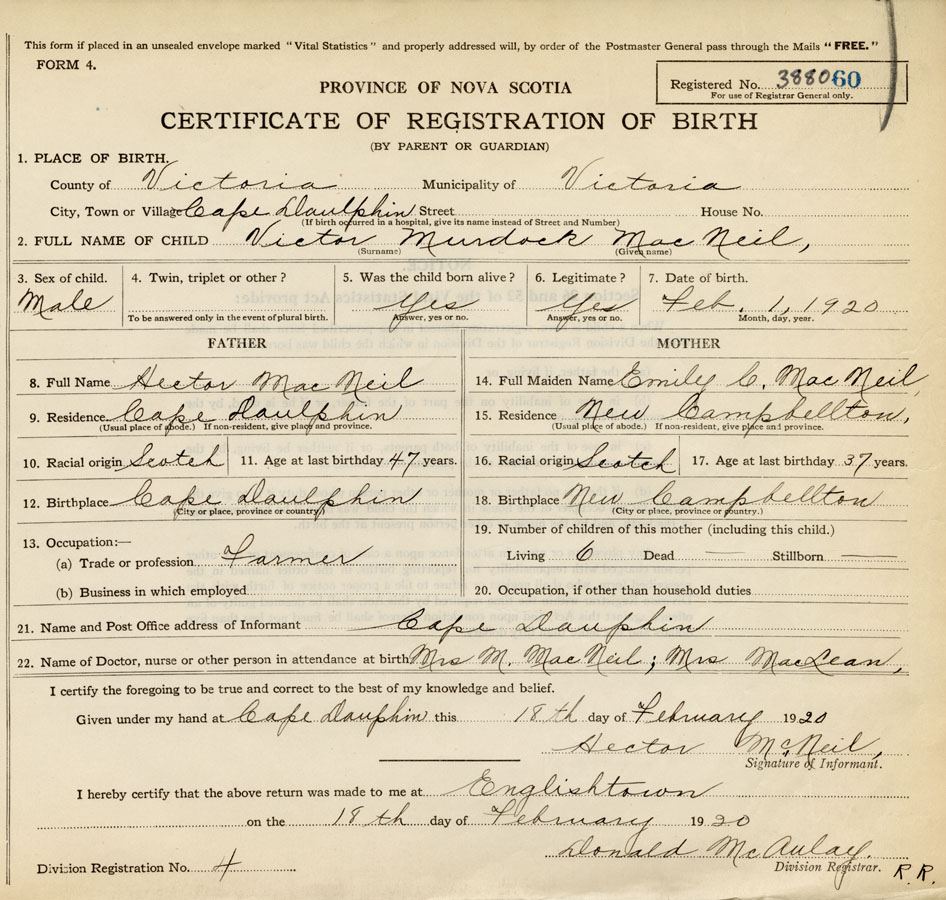 This form if placed in an unsealed envelope marked "Vital Statistics" and properly addressed will, by order of the Postmaster General pass through the Mails "FREE."
FORM 4.
Registered No. 388060
For use of Registrar General only.
PROVINCE OF NOVA SCOTIA
CERTIFICATE OF REGISTRATION OF BIRTH
(BY PARENT OR GUARDIAN)
1. PLACE OF BIRTH.
County of Victoria Municipality of Victoria
City, Town or Village Cape Daulphin Street House No.
(If birth occurred in a hospital, give its name instead of Street and Number)
2. FULL NAME OF CHILD Victor Murdock Mac Neil,
(Surname) (Given name)
3. Sex of child. 4. Twin, triplet or other? 5. Was the child born alive? 6. Legitimate? 7. Date of birth.
Male Yes Yes Feb. 1, 1920
To be answered only in the event of plural birth. Answer, yes or no. Answer, yes or no. Month, day, year.
FATHER
8. Full Name Hector Mac Neil
9. Residence Cape Daulphin
(Usual place of abode.) If non-resident, give place and province.
10. Racial origin Scotch 11. Age at last birthday 47 years.
12. Birthplace Cape Daulphin
(City or place, province or country)
13. Occupation:—
(a) Trade or profession Farmer
(b) Business in which employed
MOTHER
14. Full Maiden Name Emily C. Mac Neil,
15. Residence New Campbellton,
(Usual place of abode.) If non-resident, give place and province.
16. Racial origin Scotch 17. Age at last birthday 37 years.
18. Birthplace New Campbellton
(City or place, province or country.)
19. Number of children of this mother (including this child.)
Living 6 Dead — Stillborn —
20. Occupation, if other than household duties
21. Name and Post Office address of Informant Cape Dauphin
22. Name of Doctor, nurse or other person in attendance at birth Mrs M. Mac Neil; Mrs MacLean,
I certify the foregoing to be true and correct to the best of my knowledge and belief.
Given under my hand at Cape Dauphin this 18th day of February 1920
Hector McNeil,
Signature of Informant.
I hereby certify that the above return was made to me at Englishtown
on the 18th day of February 1920
Donald McAulay.
Division Registration No. 4 Division Registrar. R.R.